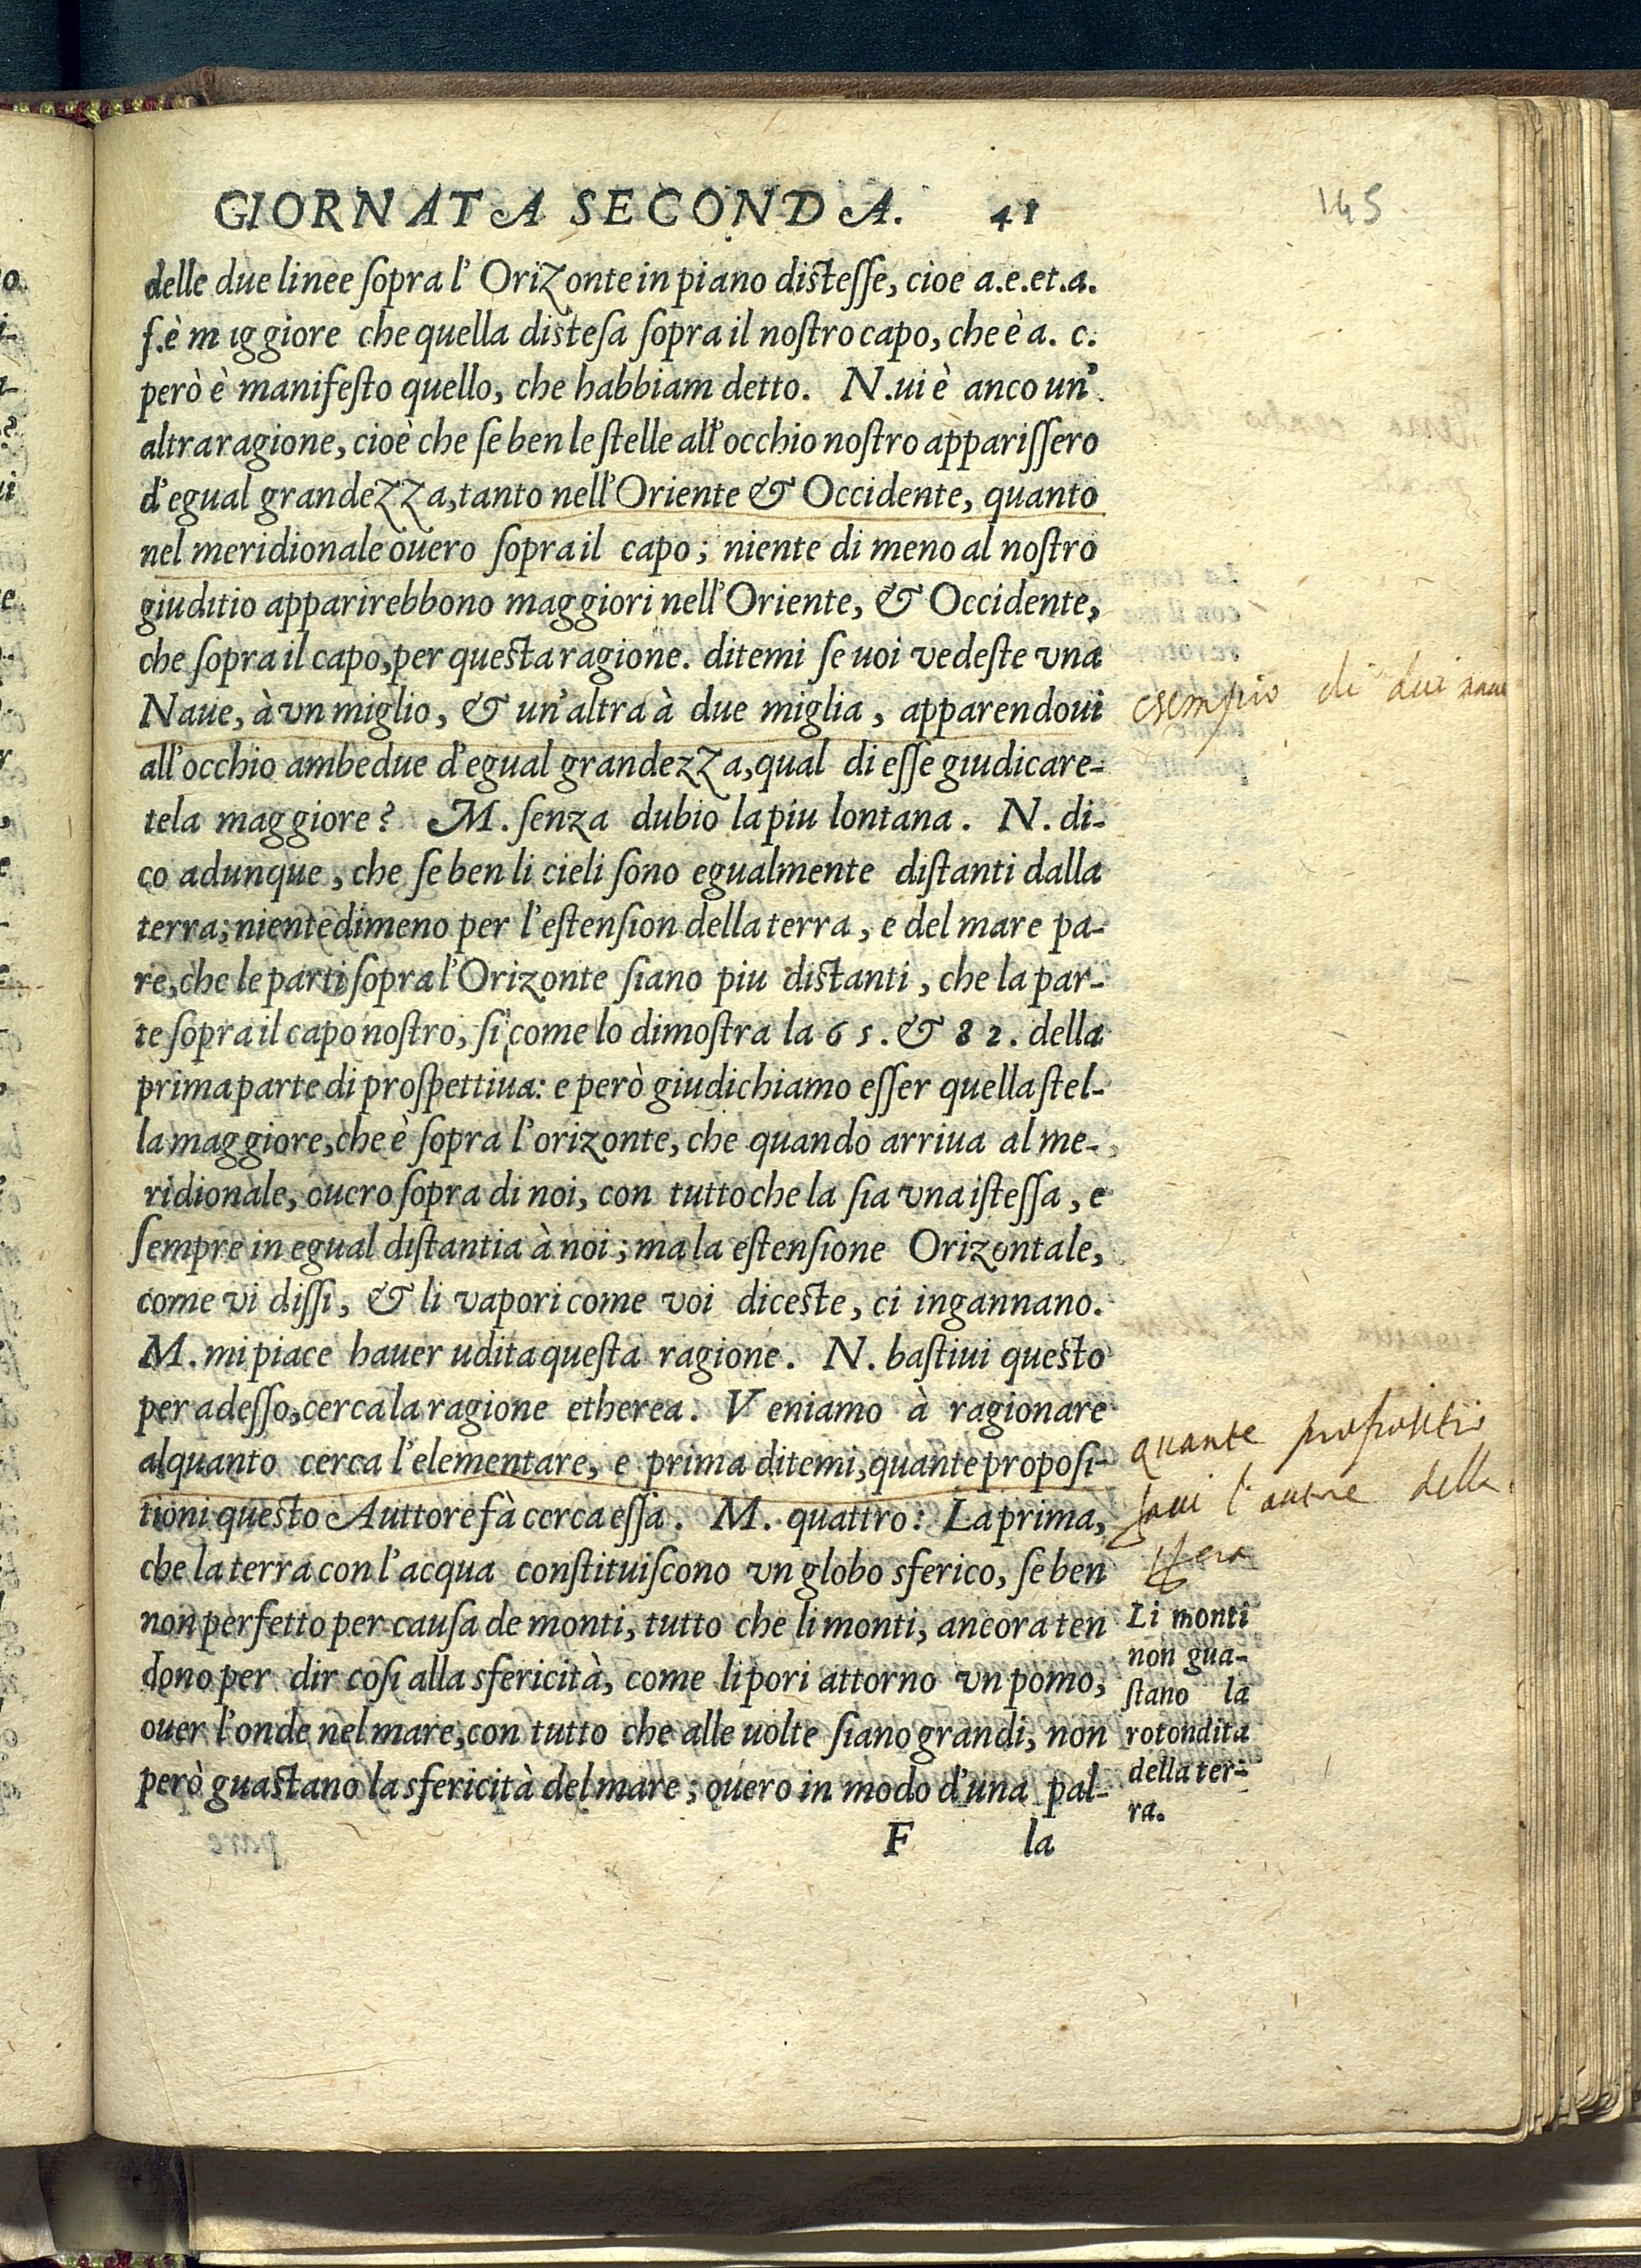 GIORNATA SECONDA. 41
145
delle due linee ſopra l'Orizonte in piano disteſſe, cioe a.e.et.a.
f.è maggiore che quella disteſa ſopra il noſtro capo, che è a. c.
però è manifeſto quello, che habbiam detto. N.ui è anco un'
altra ragione, cioè che ſe ben le ſtelle all'occhio noſtro appariſſero
d'egual grandezza, tanto nell'Oriente & Occidente, quanto
nel meridionale ouero ſopra il capo; niente di meno al noſtro
giuditio apparirebbono maggiori nell'Oriente, & Occidente,
che ſopra il capo, per questa ragione. ditemi ſe uoi vedeſte vna
Naue, à vn miglio, & un'altra à due miglia, apparendoui
esempio di dui naui
all'occhio ambedue d'egual grandezza, qual di eſſe giudicare-
tela maggiore? M. ſenza dubio la piu lontana. N. di-
co adunque, che ſe ben li cieli ſono egualmente diſtanti dalla
terra; niente dimeno per l'eſtenſion della terra, e del mare pa-
re, che le parti ſopra l'Orizonte ſiano piu distanti, che la par-
te ſopra il capo noſtro, ſi come lo dimoſtra la 65. & 82. della
prima parte di proſpettiua: e però giudichiamo eſſer quella ſtel-
la maggiore, che è ſopra l'orizonte, che quando arriua al me-
ridionale, ouero ſopra di noi, con tutto che la ſia vna iſteſſa, e
ſempre in egual diſtantia à noi; ma la eſtenſione Orizontale,
come vi diſſi, & li vapori come voi diceste, ci ingannano.
M. mi piace hauer udita queſta ragione. N. baſtiui questo
per adeſſo, cerca la ragione etherea. Veniamo à ragionare
alquanto cerca l'elementare, e prima ditemi, quante propoſi-
tioni questo Auttore fà cerca eſſa. M. quattro: La prima,
che la terra con l'acqua conſtituiſcono vn globo sferico, ſe ben
non perfetto per cauſa de monti, tutto che li monti, ancora ten
dono per dir coſi alla sfericità, come li pori attorno vn pomo,
ouer l'onde nel mare, con tutto che alle uolte ſiano grandi, non
però guastano la sfericità del mare; ouero in modo d'una pal-
F la
quante
l'autore della
sfera
Li monti
non gua-
ſtano la
rotondita
della ter-
ra.